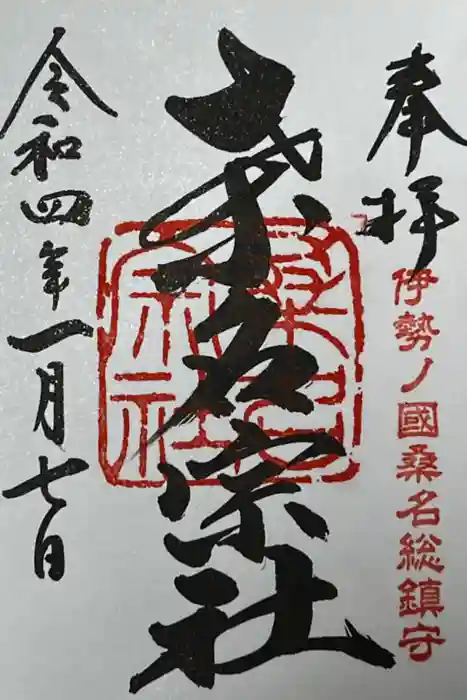 奉拝
伊勢ノ國桑名総鎮守
桑名宗社
令和四年一月七日